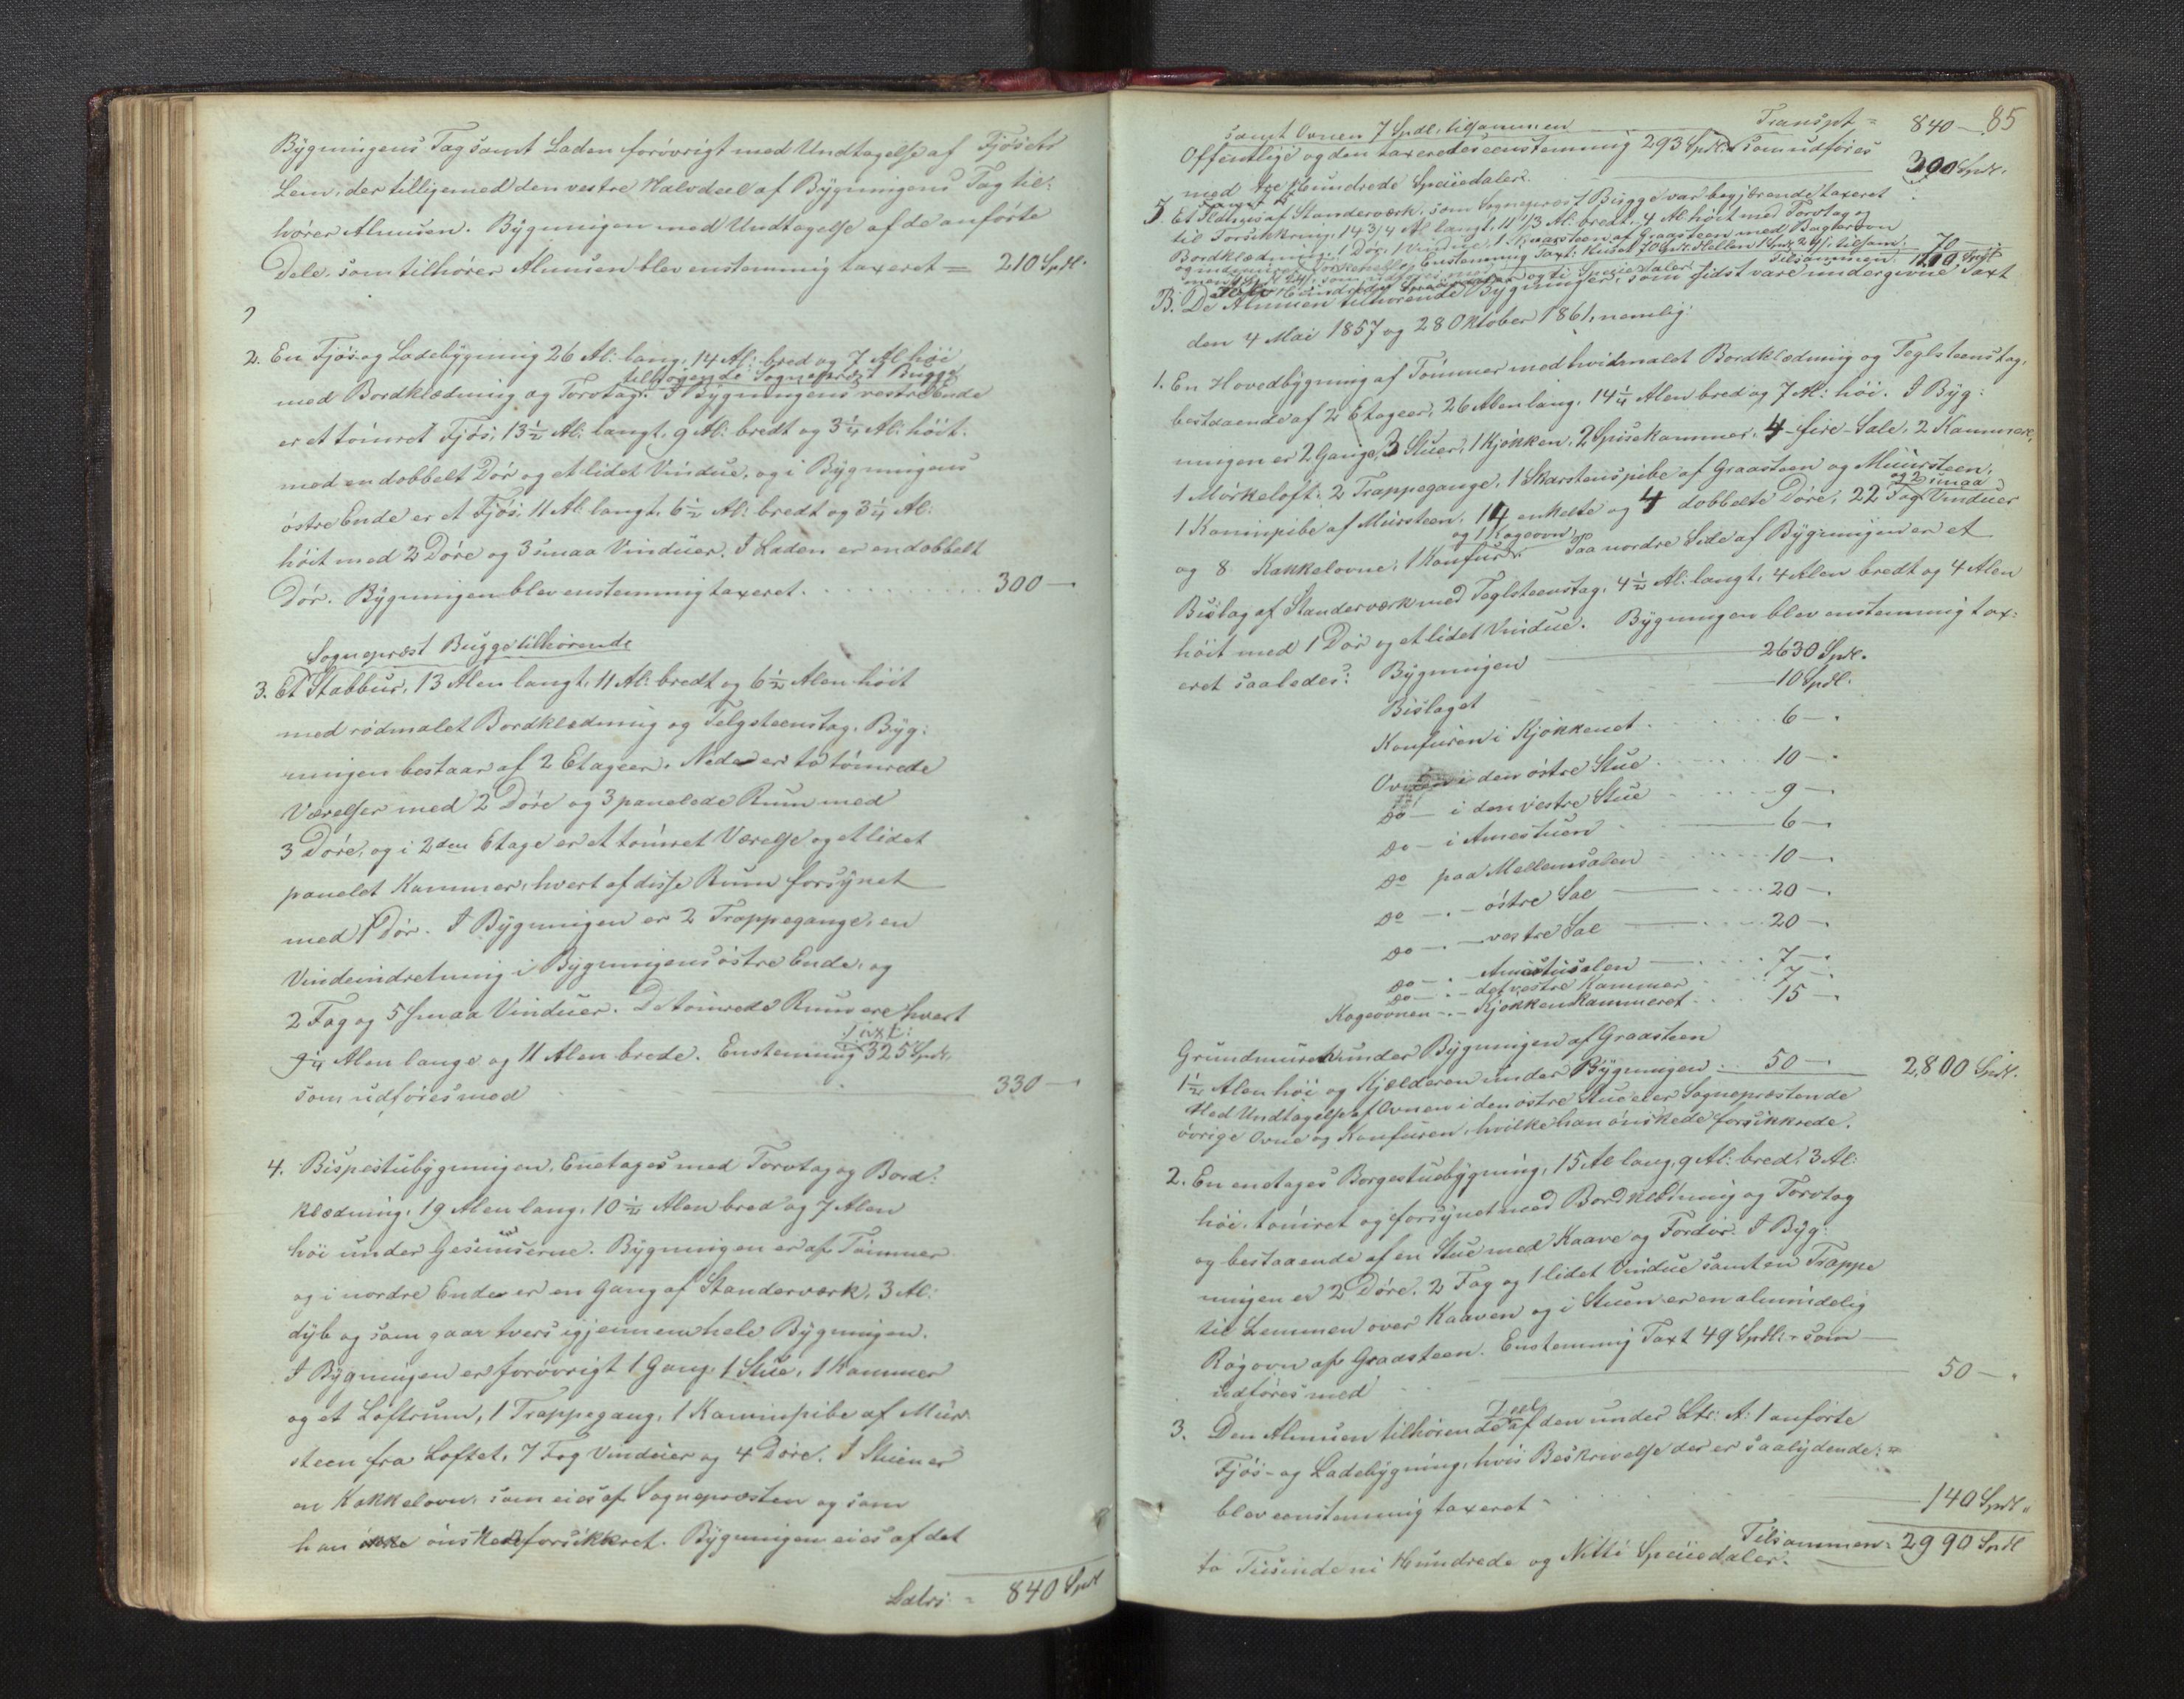 Bygningens Tag samt Laden forøvrigt med Undtagelse af Fjøsets
Lem, der tilligemed den vestre Halvdeel af Bygningens Tag til-
hører Almuen. Bygningen med Undtagelse af de anførte
Dele, som tilhører Almuen blev enstemmig taxeret = 210 Spdl.
2. En Fjøs og Ladebygning 26 Al: lang, 14 Al: bred og 7 Al høi
tilhørende Sognepræst Bugge
med Bordklædning og Torvtag. I Bygningens vestre Ende
er et tømret Fjøs, 13½ Al: langt, 9 Al: bredt og 3¼ Al: høit.
med en dobbelt Dør og et lidet Vindue, og i Bygningens
østre Ende er et Fjøs, 11 Al: langt, 6½ Al: bredt og 3¼ Al:
høit med 2 Døre og 3 smaa Vinduer. I Laden er en dobbelt
Dør. Bygningen blev enstemmig taxeret. 300 —
Sognepræst Bugge tilhørende
3. Et Stabbur, 13 Alen langt, 11 Al: bredt og 6½ Alen høit
med rødmalet Bordklædning og Telgsteenstag. Byg:
ningen bestaar af 2 Etageer. Nede er to tømrede
Værelser med 2 Døre og 3 panelede Rum med
3 Døre, og i 2den Etage er et tømret Værelse og et lidet
panelet Kammer, hvert af disse Rum forsynet
med 1 Dør. I Bygningen er 2 Trappegange, en
Vindeindretning i Bygningens østre Ende, og
2 Fag og 5 smaa Vinduer. De tømrede Rum ere hvert
9¼ Alen lange og 11 Alen brede. Enstemmig Taxt: 325 Spdl.
som udføres med 330 —
4. Bispestubygningen, Enetages med Torvtag og Bord:
klædning, 19 Alen lang, 10½ Alen bred og 7 Alen
høi under Gesimserne. Bygningen er af Tømmer
og i nordre Ende er en Gang af Standerværk, 3 Al:
dyb og som gaar tvers igjennem hele Bygningen.
I Bygningen er forøvrigt 1 Gang, 1 Stue, 1 Kammer
og et Loftrum, 1 Trappegang, 1 Kaminpibe af Muur-
steen fra Loftet, 7 Fag Vinduer og 4 Døre. I Stuen er
en Kakkelovn, som eies af Sognepræsten og som
han ikke ønskede forsikkret. Bygningen eies af det
Latus = 840 Spdl
85
Transpt = 840 —
samt Ovnen 7 Spdl, tilsammen
Offentlige og den taxeredes eenstemmig 293 Spdl. som udføres
med tre Hundrede Speciedaler. 300 Spdl.
5. Et Ildhuus af Standerværk, som Sognepræst Bugge var begjærende taxeret
til Forsikkring, 14 3/4 Al langt, 11 1/3 Al. bredt, 4 Al. høit med Torvtag og
Bordklædning, 1 Dør, 1 Vindue, 1 Skorsteen af Graasteen med Bagerovn
Enstemmig Taxt: Huset 70 Spdl. Hellen tilsam. 70 —
Tilsammen
B. De Almuen tilhørende Bygninger, som sidst vare undergivne Taxt
den 4 Mai 1857 og 28 Oktober 1861, nemlig:
1. En Hovedbygning af Tømmer med hvidmalet Bordklædning og Teglsteenstag,
bestaaende af 2 Etageer, 26 Alen lang, 14¼ Alen bred og 7 Al: høi. I Byg:
ningen er 2 Gange, 3 Stuer, 1 Kjøkken, 2 Spisekammer, 4 - fire - Sale, 2 Kammere,
1 Mørkeloft, 2 Trappegange, 1 Skorstenspibe af Graasteen og Muursteen,
og 2 smaa
1 Kaminpibe af Mursteen, 14 enkelte og 4 dobbelte Døre, 22 Fag Vinduer
og 1 Kogeovn
og 8 Kakkelovne, 1 Konfur. Paa nordre Side af Bygningen er et
Bislag af Standerværk med Teglsteenstag, 4½ Al. langt, 4 Alen bredt og 4 Alen
høit med 1 Dør og et lidet Vindue. Bygningen blev enstemmig tax:
eret saaledes: Bygningen 2630 Spdl.
Bislaget 10 Spdl.
Konfuren i Kjøkkenet 6 —
Ovnen i den østre Stue 10 —
Do — i den vestre Stue 9 —
Do — i Amestuen 6 —
Do paa Mellemsalen 10 —
Do — . — østre Sal 20 —
Do — . — vestre Sal 20 —
Do — . — Amestusalen 7 —
Do — . — det vestre Kammer 7 —
Kogeovnen — . — Kjøkkenkammeret 15 —
Grundmuren under Bygningen af Graasteen
1½ Alen høi og Kjælderen under Bygningen 50 — 2,800 Spdl.
Med Undtagelse af Ovnen i den østre Stue eier Sognepræsten de
øvrige Ovne og Konfuren, hvilke han ønskede forsikkrede.
2. En enetages Borgestuebygning, 15 Al lang, 9 Al: bred, 3 Al:
høi, tømret og forsynet med Bordklædning og Torvtag
og bestaaende af en Stue med Kaave og Fordør. I Byg:
ningen er 2 Døre, 2 Fag og 1 lidet Vindue samt en Trappe
til Lemmen over Kaaven og i Stuen er en almindelig
Røgovn af Graasteen. Enstemmig Taxt 49 Spdl. som
udføres med 50 —
3. Den Almuen tilhørende Deel af den under Litr: A: 1 anførte
Fjøs- og Ladebygning, hvis Beskrivelse der er saalydende: =
blev eenstemmig taxeret 140 Spdl.
Tilsammen = 2990 Spdl
to Tusinde ni Hundrede og Nitti Speciedaler.